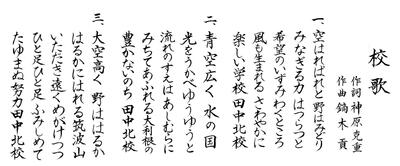 校歌
作詞 神原克重
作曲 鏑木貢
一、空はればれと 野はみどり
みなぎる力 はつらつと
希望のいずみ わくところ
風も生まれる さわやかに
楽しい学校 田中北校
二、青空広く 水の国
光をうかべ ゆうゆうと
流れのすえは あしむらに
みちてあふれる 大利根の
豊かないのち 田中北校
三、大空高く 野ははるか
はるかにはれる 筑波山
いただき遠く めがけつつ
ひと足ひと足 ふみしめて
たゆまぬ努力 田中北校